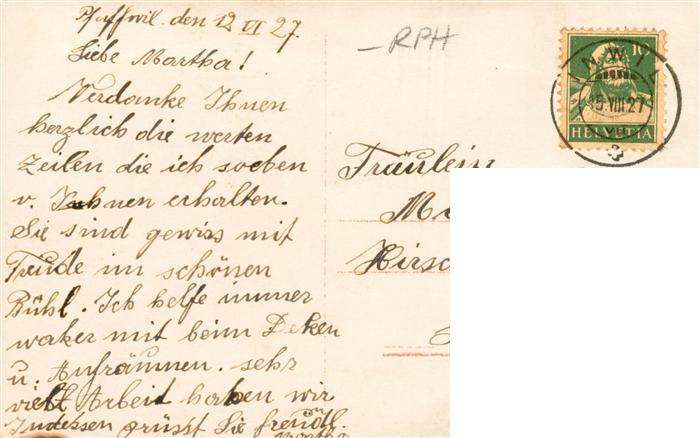 Pfaffwil. den 12 VI 27.
Liebe Martha!
Verdanke Ihnen
herzlich die werten
Zeilen die ich soeben
v. Ihnen erhalten.
Sie sind gewiss mit
Freude im schönen
Bühl. Ich helfe immer
waker mit beim Deken
u. Aufräumen. sehr
viel Arbeit haben wir
Indessen grüsst Sie freudl.
Martha
- RPH
10
INWIL
VIII 27
HELVETIA
Fräulein
M
Hirsc